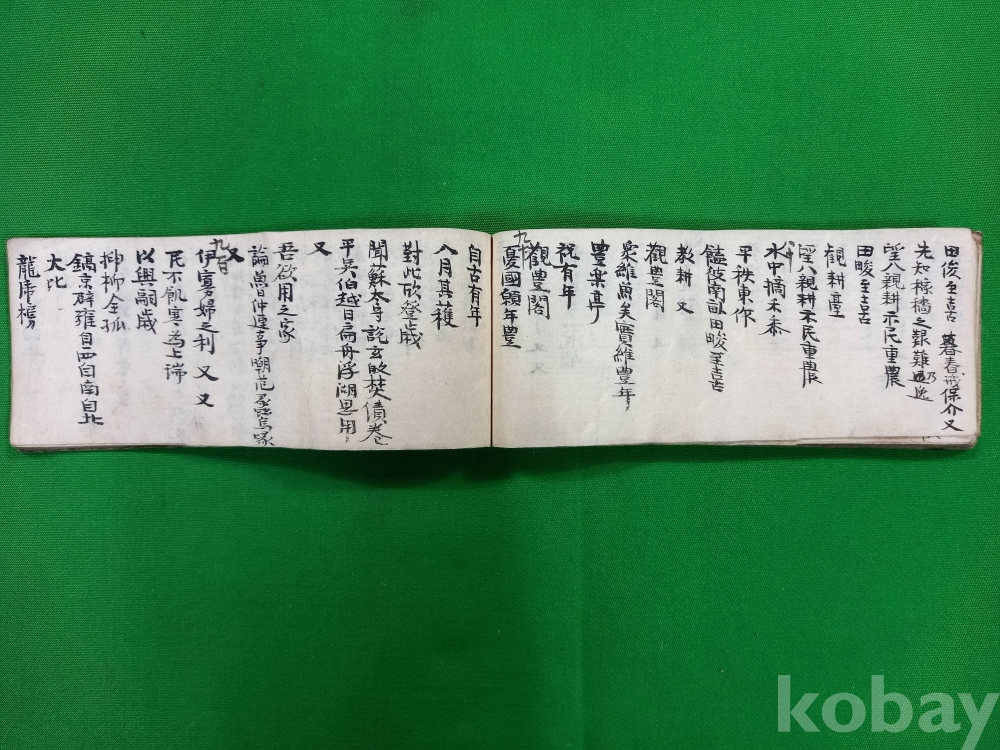 田俊至喜 暮春戒保介 又
先知稼穡之艱難乃逸
望八親耕示民重農
田畯至喜
觀耕臺
望八親耕示民重農
水中摘禾黍
平秩東作
饁彼南畝田畯至喜
教耕 又
觀豊閣
衆維魚矣實維豊年
豊樂亭
祝有年
觀豊閣
憂國願年豊
自古有年
八月其穫
對此欣登歲
聞蘇太守說玄畝焚債卷
平吳伯越日扁舟浮湖思用
又
吾欲用之家
論魯仲連事嘲范
又
伊寡婦之利 又 又
民不飢寒為上瑞
以興嗣歲
柳柳全孤
鎬京辟雍自西自南自北
大比
龍虎榜
kobay